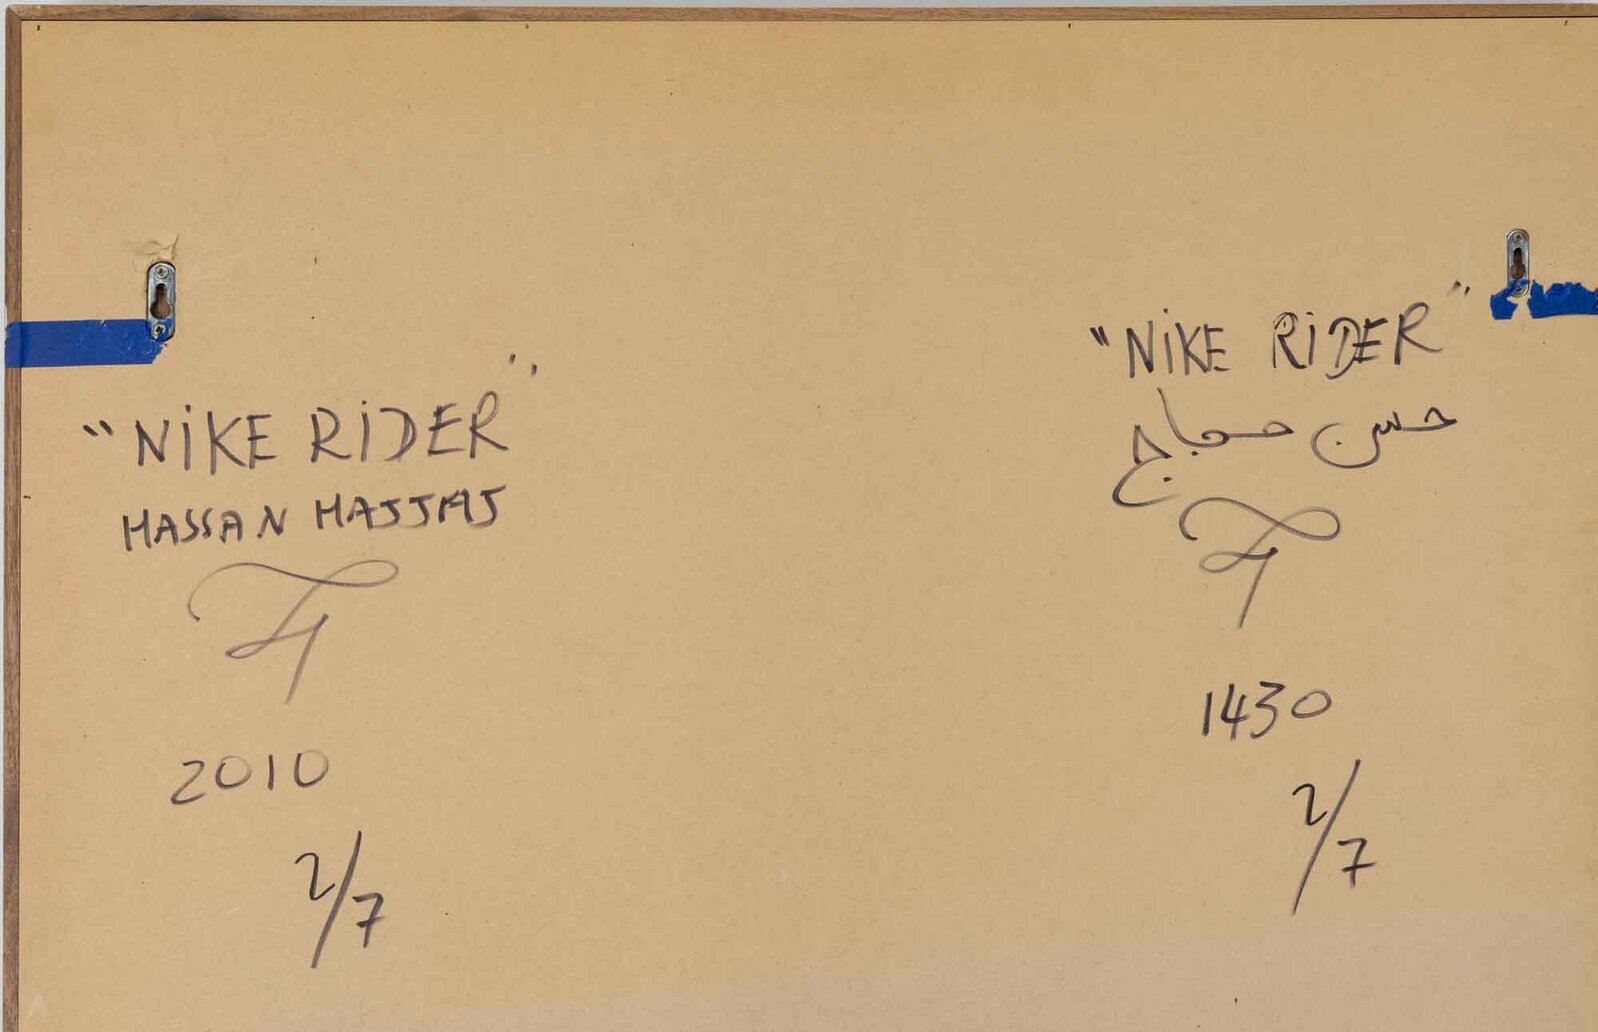 "NiKE RiDER"
HASSAN HAJJAJ
2010
2/7
"NiKE RiDER"
حسن حجاج
1430
2/7